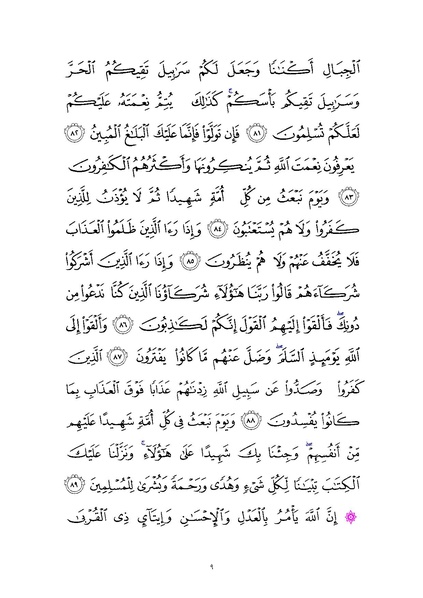 ٱلۡجِبَالِ أَكۡنَٰنٗا وَجَعَلَ لَكُمۡ سَرَٰبِيلَ تَقِيكُمُ ٱلۡحَرَّ
وَسَرَٰبِيلَ تَقِيكُم بَأۡسَكُمۡۚ كَذَٰلِكَ يُتِمُّ نِعۡمَتَهُۥ عَلَيۡكُمۡ
لَعَلَّكُمۡ تُسۡلِمُونَ ٨١ فَإِن تَوَلَّوۡاْ فَإِنَّمَا عَلَيۡكَ ٱلۡبَلَٰغُ ٱلۡمُبِينُ ٨٢
يَعۡرِفُونَ نِعۡمَتَ ٱللَّهِ ثُمَّ يُنكِرُونَهَا وَأَكۡثَرُهُمُ ٱلۡكَٰفِرُونَ
٨٣ وَيَوۡمَ نَبۡعَثُ مِن كُلِّ أُمَّةٖ شَهِيدٗا ثُمَّ لَا يُؤۡذَنُ لِلَّذِينَ
كَفَرُواْ وَلَا هُمۡ يُسۡتَعۡتَبُونَ ٨٤ وَإِذَا رَءَا ٱلَّذِينَ ظَلَمُواْ ٱلۡعَذَابَ
فَلَا يُخَفَّفُ عَنۡهُمۡ وَلَا هُمۡ يُنظَرُونَ ٨٥ وَإِذَا رَءَا ٱلَّذِينَ أَشۡرَكُواْ
شُرَكَآءَهُمۡ قَالُواْ رَبَّنَا هَٰٓؤُلَآءِ شُرَكَآؤُنَا ٱلَّذِينَ كُنَّا نَدۡعُواْ مِن
دُونِكَۖ فَأَلۡقَوۡاْ إِلَيۡهِمُ ٱلۡقَوۡلَ إِنَّكُمۡ لَكَٰذِبُونَ ٨٦ وَأَلۡقَوۡاْ إِلَى
ٱللَّهِ يَوۡمَئِذٍ ٱلسَّلَمَۖ وَضَلَّ عَنۡهُم مَّا كَانُواْ يَفۡتَرُونَ ٨٧ ٱلَّذِينَ
كَفَرُواْ وَصَدُّواْ عَن سَبِيلِ ٱللَّهِ زِدۡنَٰهُمۡ عَذَابٗا فَوۡقَ ٱلۡعَذَابِ بِمَا
كَانُواْ يُفۡسِدُونَ ٨٨ وَيَوۡمَ نَبۡعَثُ فِي كُلِّ أُمَّةٖ شَهِيدًا عَلَيۡهِم
مِّنۡ أَنفُسِهِمۡۖ وَجِئۡنَا بِكَ شَهِيدًا عَلَىٰ هَٰٓؤُلَآءِۚ وَنَزَّلۡنَا عَلَيۡكَ
ٱلۡكِتَٰبَ تِبۡيَٰنٗا لِّكُلِّ شَيۡءٖ وَهُدٗى وَرَحۡمَةٗ وَبُشۡرَىٰ لِلۡمُسۡلِمِينَ ٨٩
۞ إِنَّ ٱللَّهَ يَأۡمُرُ بِٱلۡعَدۡلِ وَٱلۡإِحۡسَٰنِ وَإِيتَآيِٕ ذِي ٱلۡقُرۡبَىٰ
٩